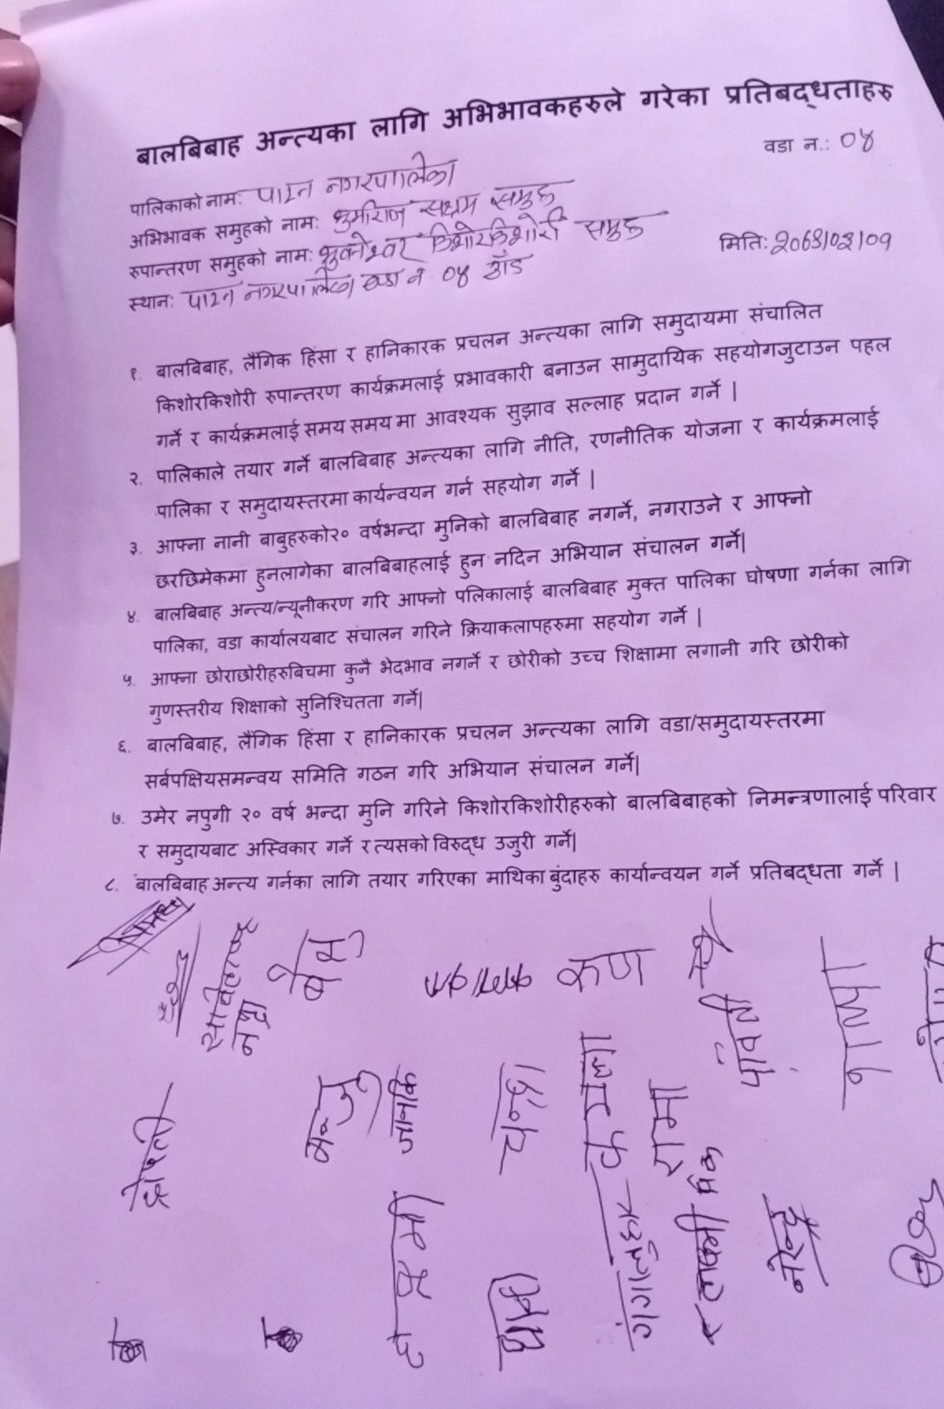 बालबिबाह अन्त्यका लागि अभिभावकहरुले गरेका प्रतिबद्धताहरु
वडा न.: ०४
पालिकाको नाम: पाटन नगरपालिका
अभिभावक समुहको नाम: सक्षम समुह
रुपान्तरण समुहको नाम: भुवनेश्वर किशोरकिशोरी समुह
मिति:
स्थान: पाटन नगरपालिका वडा नं ०४
१. बालबिबाह, लैंगिक हिंसा र हानिकारक प्रचलन अन्त्यका लागि समुदायमा संचालित
किशोरकिशोरी रुपान्तरण कार्यक्रमलाई प्रभावकारी बनाउन सामुदायिक सहयोगजुटाउन पहल
गर्ने र कार्यक्रमलाई समय समय मा आवश्यक सुझाव सल्लाह प्रदान गर्ने |
२. पालिकाले तयार गर्ने बालबिबाह अन्त्यका लागि नीति, रणनीतिक योजना र कार्यक्रमलाई
पालिका र समुदायस्तरमा कार्यन्वयन गर्न सहयोग गर्ने |
३. आफ्ना नानी बाबुहरुको२० वर्षभन्दा मुनिको बालबिबाह नगर्ने, नगराउने र आफ्नो
छरछिमेकमा हुनलागेका बालबिबाहलाई हुन नदिन अभियान संचालन गर्ने|
४. बालबिबाह अन्त्य/न्यूनीकरण गरि आफ्नो पलिकालाई बालबिबाह मुक्त पालिका घोषणा गर्नका लागि
पालिका, वडा कार्यालयबाट संचालन गरिने क्रियाकलापहरुमा सहयोग गर्ने |
५. आफ्ना छोराछोरीहरुबिचमा कुनै भेदभाव नगर्ने र छोरीको उच्च शिक्षामा लगानी गरि छोरीको
गुणस्तरीय शिक्षाको सुनिश्चितता गर्ने|
६. बालबिबाह, लैंगिक हिंसा र हानिकारक प्रचलन अन्त्यका लागि वडा/समुदायस्तरमा
सर्बपक्षियसमन्वय समिति गठन गरि अभियान संचालन गर्ने|
७. उमेर नपुगी २० वर्ष भन्दा मुनि गरिने किशोरकिशोरीहरुको बालबिबाहको निमन्त्रणालाई परिवार
र समुदायबाट अस्विकार गर्ने र त्यसको विरुद्ध उजुरी गर्ने|
८. बालबिबाह अन्त्य गर्नका लागि तयार गरिएका माथिका बुंदाहरु कार्यान्वयन गर्ने प्रतिबद्धता गर्ने |
कण
मन्जु
जानकि
चन्द्रा
नरेन्द्र